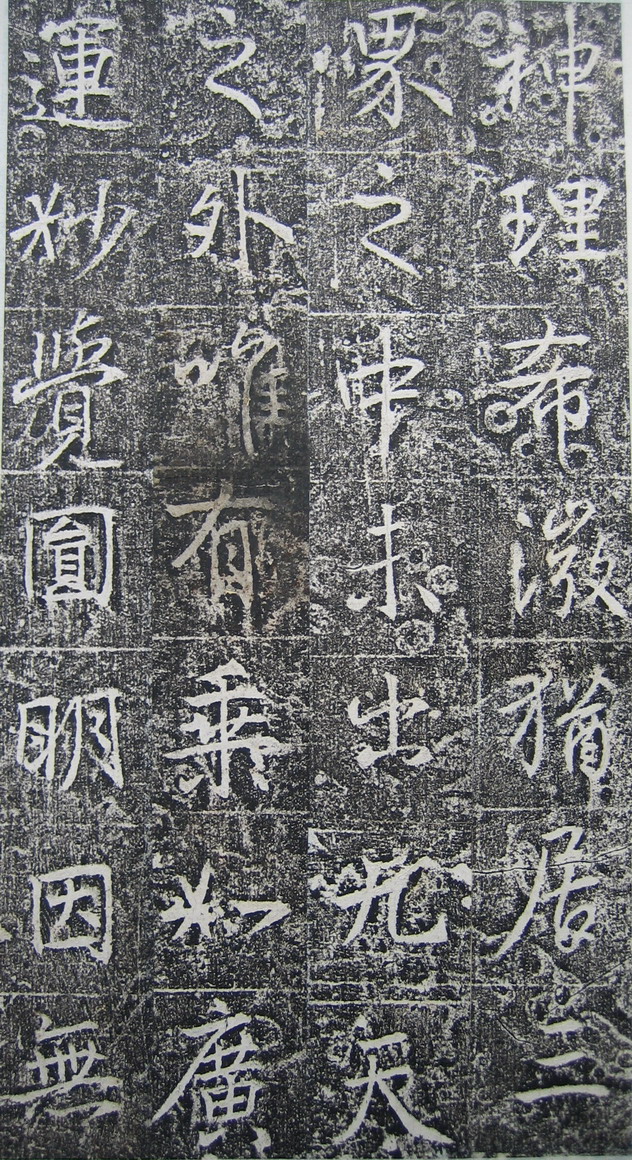 神理希微猶居三
之中未出九天
之外唯有乘如廣
運妙覺圓明因無